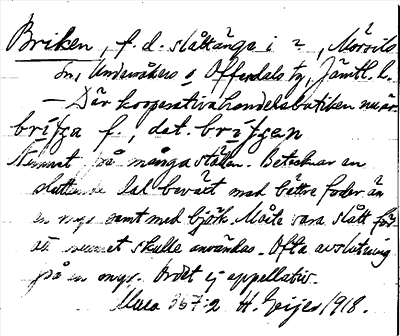 Briken, f. d. slåttänge i 2, Mörsils
sn, Undersåkers o Offerdals tg, Jämtl. l.
— Där kooperativa handelsbutiken nu är.
brifga f., dat. brifgan
Namnet på många ställen. Betecknar en
sluttande dal beväxt med bättre foder än
en myr samt med björk. Måste vara slått för
att namnet skulle användas. Ofta avslutning
på en myr. Ordet ej appellativ.
367:2 H. Geijer 1918.